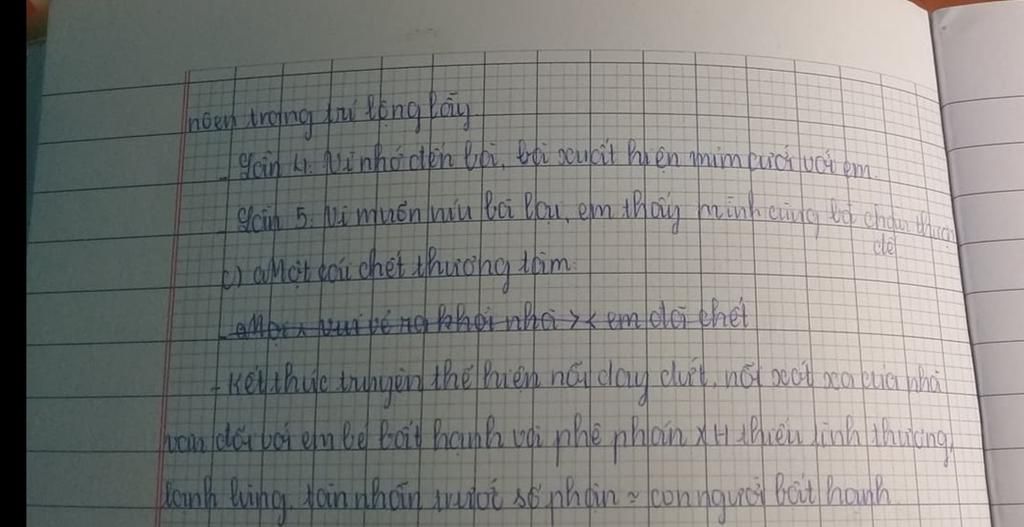 noen trang trí lộng lẫy
- Lần 4: Vì nhớ đến bà, bà xuất hiện mỉm cười với em.
- Lần 5: Vì muốn níu bà lại, em thấy mình cùng bà
c) Một cái chết thương tâm.
- vui vẻ ra khỏi nhà >< em đã chết
+ Kết thúc truyện thể hiện nỗi day dứt, nỗi xót xa của nhà
văn đối với em bé bất hạnh và phê phán XH thiếu tình thương,
lạnh lùng, tàn nhẫn trước số phận ~ con người bất hạnh